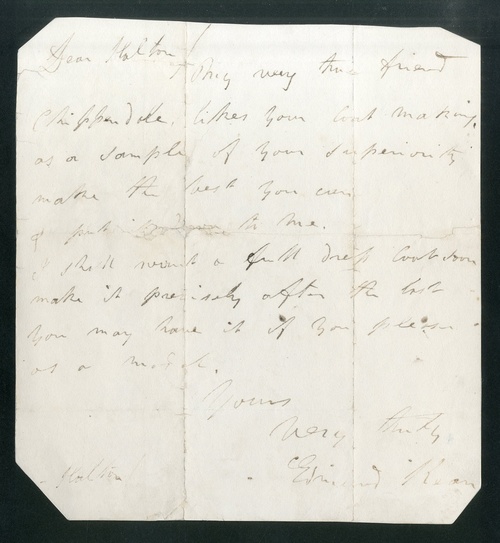 Dear Halton!
My very true friend
Chippendale, likes your Coat making,
as a sample of your superiority
make the best you can
& put down to me.
I shall want a full dress Coat soon
make it precisely after the last
you may have it if you please
as a model.
Yours
very truly
Edmund Kean
Halton!